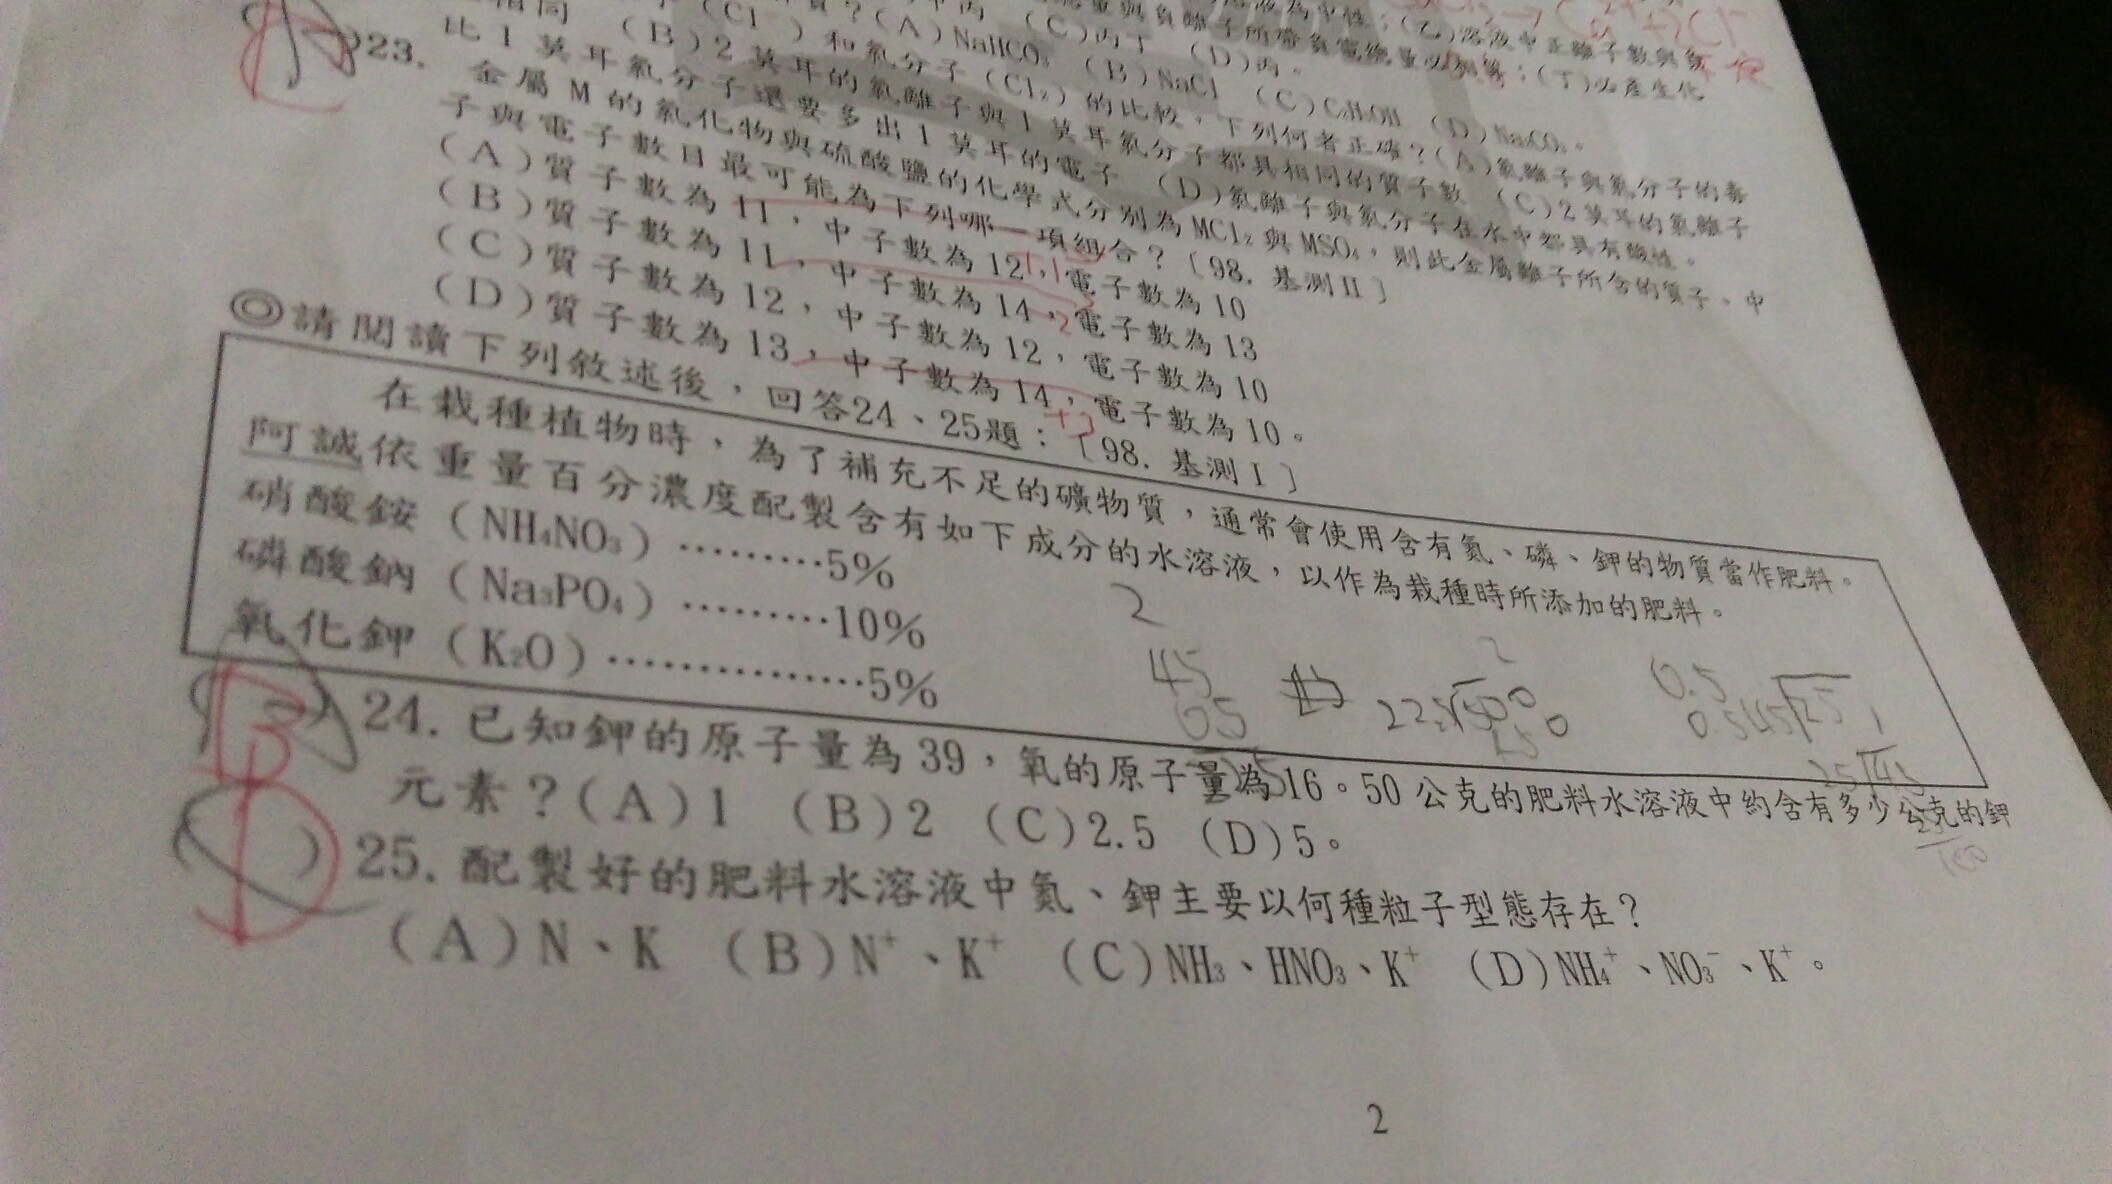 (A)NaHCO₃ (B)NaCl (C)C₂H₅OH (D)Na₂CO₃。
和氯分子(Cl₂)的比較，下列何者正確？(A)氯離子與氯分子的毒
相同 (B)2莫耳的氯離子與1莫耳氯分子都具相同的質子數 (C)2莫耳的氯離子
比1莫耳氯分子還要多出1莫耳的電子 (D)氯離子與氯分子在水中都具有酸性。
23. 金屬M的氯化物與硫酸鹽的化學式分別為MCl₂與MSO₄，則此金屬離子所含的質子、中
子與電子數目最可能為下列哪一項組合？〔98. 基測II〕
(A)質子數為11，中子數為12，電子數為10
(B)質子數為11，中子數為14，電子數為13
(C)質子數為12，中子數為12，電子數為10
(D)質子數為13，中子數為14，電子數為10。
◎請閱讀下列敘述後，回答24、25題：〔98. 基測I〕
在栽種植物時，為了補充不足的礦物質，通常會使用含有氮、磷、鉀的物質當作肥料。
阿誠依重量百分濃度配製含有如下成分的水溶液，以作為栽種時所添加的肥料。
硝酸銨（NH₄NO₃）………5%
磷酸鈉（Na₃PO₄）………10%
氧化鉀（K₂O）……………5%
2
45
05
0.5
B 24. 已知鉀的原子量為39，氧的原子量為16。50公克的肥料水溶液中約含有多少公克的鉀
元素？(A)1 (B)2 (C)2.5 (D)5。
D 25. 配製好的肥料水溶液中氮、鉀主要以何種粒子型態存在？
(A)N、K (B)N⁺、K⁺ (C)NH₃、HNO₃、K⁺ (D)NH₄⁺、NO₃⁻、K⁺。
2